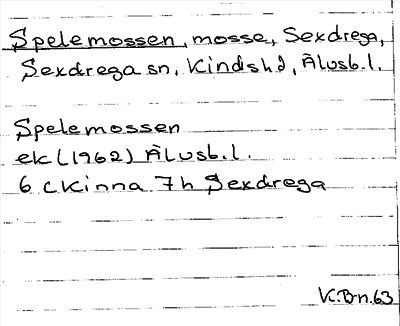 Spelemossen, mosse, Sexdrega,
Sexdrega sn, Kinds hd, Älvsb. l.
Spelemossen
ek (1962) Älvsb. l.
6 c Kinna 7h Sexdrega
K.Bn.63